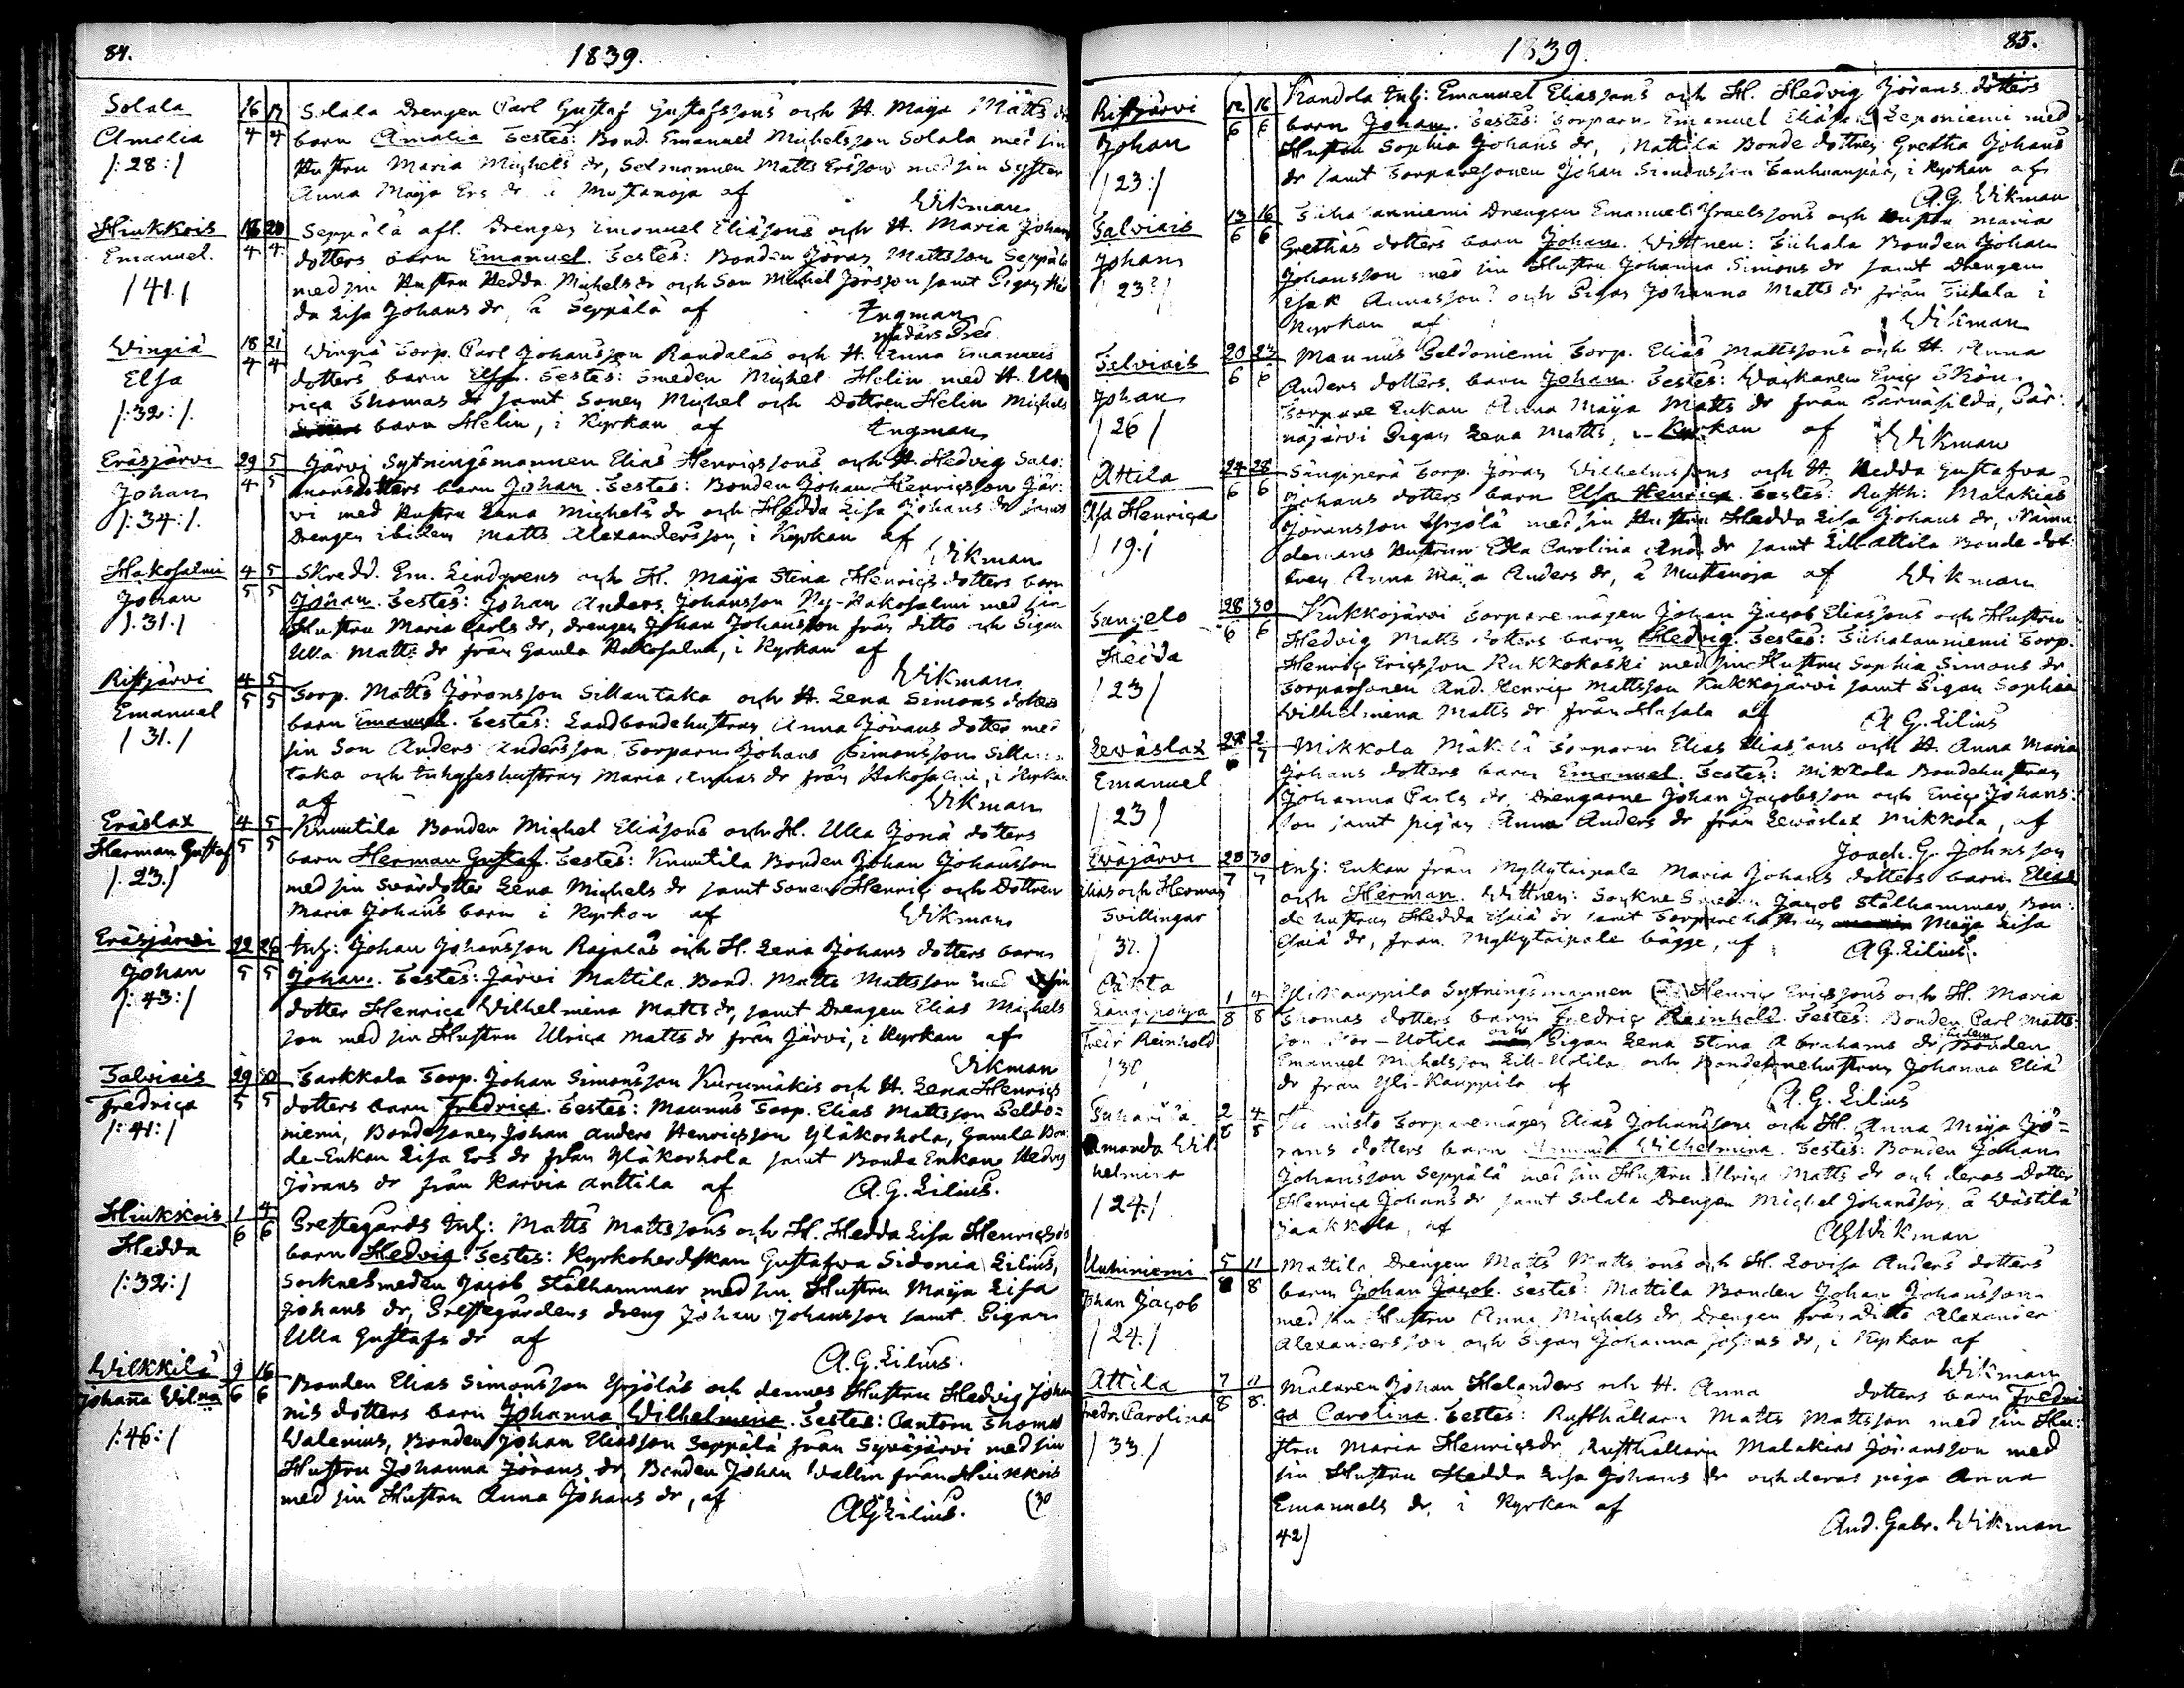 84.
1839.
Solala
Amalia
/:28:/
16 17
4 4
Solala Drengen Carl Gustaf Gustafssons och H. Maya Matts dr
barn Amalia Testes: Bond. Emanuel Michelsson Solala med sin
Hustru Maria Michels dr, Matts Ersson med sin Syster
Anna Maja Ers dr i Mustanoja af
Wikman
Hiukkois
Emanuel.
/41./
16 20
4 4
Seppälä afl. Drengen Emanuel Eliæsons och H. Maria Johans
dotters barn Emanuel. Testes: Bonden Göran Mattsson Seppälä
med sin Hustru Hedda Michels dr och Son Michel Jörsson samt Pigan Hed
da Lisa Johans dr, å Seppälä af
Engman
Wingiä
Elsa
/:32:/.
18 21
4 4
Wingiä Torp. Carl Johansson Randalas och H. Anna Emanuels
dotters barn Elsa. Testes: Smeden Michel Helin med H. Ul
rica Thomas dr samt Sonen Michel och Dottren Helin Michels
barn Helin, i Kyrkan af
Engman
Eräsjärvi
Johan
/:34:/.
29 5
4 5
Järvi Sytningsmannen Elias Henricssons och H. Hedvig Salo
monsdotters barn Johan. Testes: Bonden Johan Henricsson Jär-
vi med Hustru Lena Michels dr och Hedda Lisa Johans dr samt
Drengen ibidem Matts Alexandersson, i Kyrkan af
Wikman
Hakosalmi
Johan
/.31./
4 5
5 5
Skredd. Em. Lindgrens och H. Maija Stina Henrics dotters barn
Johan. Testes: Johan Anders Johansson Ny-Hakosalmi med sin
Hustru Maria Carls dr, drengen Johan Johansson från ditto och Pigan
Ulla Matts dr från Gamla Hakosalmi, i Kyrkan af
Wikman
Ristjärvi
Emanuel
/31./
4 5
5 5
Torp. Matts Jöransson Sillantaka och H. Lena Simons dotters
barn Emanuel. Testes: Landbondehustrun Anna Jörans dotter med
sin Son Anders Andersson, Torparn Johans Simonsson Sillan
taka och Inhyseshustrun Maria dr från Hakosalmi, i Kyrkan
af
Wikman
Eräslax
Herman Gustaf
/.23./
4 5
5 5
Knuutila Bonden Michel Eliæsons och H. Ulla Jonæ dotters
barn Herman Gustaf. Testes: Knuutila Bonden Johan Johansson
med sin Svärdotter Lena Michels dr samt Sonen Henric och Dottren
Maria Johans barn i Kyrkan af
Wikman
Eräsjärvi
Johan
/:43:/
22 26
5 5
Inh: Johan Johansson Rajalas och H. Lena Johans dotters barn
Johan. Testes: Järvi Mattila Bond. Matts Mattsson med sin
dotter Henrica Wilhelmina Matts dr, samt Drengen Elias Michels
son med sin Hustru Ulrica Matts dr från Järvi, i Kyrkan af
Wikman
Talviais
Fredrica
/:41:/
29 30
5 5
Tarkkala Torp. Johan Simonsson Kurumäkis och H. Lena Henrics
dotters barn Fredrica. Testes: Maunus Torp. Elias Mattsson Peldo=
niemi, Bondesonen Johan Anders Henricsson Yläkorhola, Gamle Bon
de-Enkan Lisa Ers dr från Yläkorhola samt Bonde Enkan Hedvig
Jörans dr från Karvia Anttila af
A. G. Lilius.
Hiukkois
Hedda
/:32:/
1 4
6 6
Prestegårds Inh: Matts Mattssons och H. Hedda Lisa Henrics drs
barn Hedvig. Testes: Kyrkoherdskan Gustafva Sidonia Lilius,
Socknesmeden Jacob Stålhammar med sin Hustru Maija Lisa
Johans dr, Prestegårdens dreng Johan Johansson samt Pigan
Ulla Gustafs dr af
A. G. Lilius.
Wilkkilä
Johana Wilna
/:46:/
9 16
6 6
Bonden Elias Simonsson Yrjöläs och dennes Hustru Hedvig Johan
nis dotters barn Johanna Wilhelmina. Testes: Cantorn Thomas
Walenius, Bonden Johan Eliasson Seppälä från Syväjärvi med sin
Hustru Johanna Jörans dr, Bonden Johan Wallin från Hiukkois
med sin Hustru Anna Johans dr, af
AG Lilius.
(30
1839.
85.
Ristjärvi
Johan
/23:/
12 16
6 6
Randola Inh: Emanuel Eliassons och H. Hedvig Jörans dotters
barn Johan. Testes: Torparn Emanuel Eliæson Leponiemi med
Hustru Sophia Johans dr, Mattila Bonde dottren Gretha Johans
dr samt Torparesonen Johan Simonsson Tanhuanpää, i Kyrkan af
A. G. Wikman
Talviais
Johan
/23?/
13 16
6 6
Drengen Emanuel Israelssons och Hustru Maria
Grethas dotters barn Johan. Wittnen: Tiihala Bonden Johan
Johansson med sin Hustru Johanna Simons dr samt Drengen
Isak Annasson? och Pigan Johanna Matts dr från Tiihala i
Kyrkan af
Wikman
Talviais
Johan
/26/
20 23
6 6
Maunus Peldoniemi Torp. Elias Mattssons och H. Anna
Anders dotters barn Johan. Testes: Wäskaren Eric Skön
Torpare Enkan Anna Maija Matts dr från Pär-
näjärvi Pigan Lena Matts, i Kyrkan af
Wikman
Attila
Elsa Henrica
/19./
24 28
6 6
Sänginperä Torp. Jöran Wilhelmssons och H. Hedda Gustafva
Johans dotters barn Elsa Henrica. Testes: Rusth: Malakias
Jöransson Yrjölä med sin Hustru Hedda Lisa Johans dr, Nämn
demans Hustrun Edla Carolina And. dr samt Lill-Attila Bonde dot-
tren Anna Maija Anders dr, å Mustanoja af
Wikman
Hedda
/23/
28 30
6 6
Kukkojärvi Torparemågen Johan Jacob Eliassons och Hustru
Hedvig Matts dotters barn Hedvig. Testes: Torp.
Henric Ericsson Kukkokoski med sin Hustru Sophia Simons dr
Torparsonen And. Henric Mattsson Kukkojärvi samt Pigan Sophia
Wilhelmina Matts dr från af
A G. Lilius
Lewäslax
Emanuel
/23/
2
7
Mikkola Mäkelä Torparen Elias Eliassons och H. Anna Maria
Johans dotters barn Emanuel. Testes: Mikkola Bondehustrun
Johanna Carls dr, Drengarne Johan Jacobsson och Eric Johans-
son samt pigan Anna Anders dr från Lewäslax Mikkola, af
Joach. G. Johnsson
Eväjärvi
Elias och Herman
Tvillingar
/37./
28 30
7 7
Inh: Enkan från Myllytaipale Maria Johans dotters barn Elias
och Herman. Wittnen: Sockne Smeden Jacob Stålhammar, Bon-
de hustrun Hedda Esaiæ dr samt Torpare hustrun Maija Lisa
Esaiæ dr, från Myllytaipale bägge, af
A G. Lilius.
Längipohja
Fredr Reinhold
/30
1 4
8 8
Yli Kauppila Sytningsmannen Henric Ericssons och H. Maria
Thomas dotters barn Fredric Reinhold. Testes: Bonden Carl Matts-
son Stor-Uotila och Pigan Lena Stina Abrahams dr, Bonden
Emanuel Michelsson Lill-Uotila och Johanna Eliæ
dr från Yli-Kauppila af
A. G. Lilius
Amanda Wil
helmina
/24:/
2 4
8 8
Torparemågen Elias Johanssons och H. Anna Maija Jö=
rans dotters barn Amanda Wilhelmina. Testes: Bonden Johan
Johansson Seppälä med sin Hustru Ulrica Matts dr och deras dotter
Henrica Johans dr samt Solala Drengen Michel Johansson, å Västilä
Jaakkola, af
AGWikman
Uuhiniemi
Johan Jacob
/24./
5 11
8 8
Mattila Drengen Matts Mattssons och H. Lovisa Anders dotters
barn Johan Jacob. Testes: Mattila Bonden Johan Johansson
med sin Hustru Anna Michels dr, Drengen från ditto Alexander
Alexandersson och Pigan Johanna Johans dr, i Kyrkan af
Wikman
Attila
Fredr. Carolina
/33./
7 11
8 8.
Målaren Johan Helanders och H. Anna dotters barn Fredri
ca Carolina. Testes: Rusthållarn Matts Mattsson med sin Hu-
stru Maria Henricsdr, Rusthållarn Malakias Jöransson med
sin Hustru Hedda Lisa Johans dr och deras piga Anna
Emanuels dr, i Kyrkan af
And. Gabr. Wikman
42)